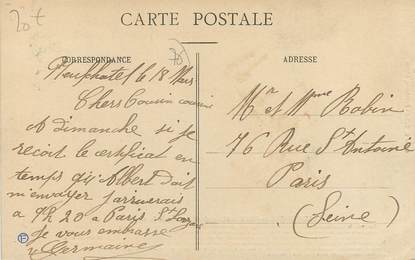 20 t
CARTE POSTALE
CORRESPONDANCE
ADRESSE
Neufchatel le 18 Mars
Chers Cousin cousine
A dimanche si je
recoit le certificat en
temps qu'Albert doit
m'envoyer j'arriverais
a 7h20 a Paris St Lazare
Je vous embrasse
Germaine
Mr et Mme Robin
76 Rue St Antoine
Paris
(Seine)